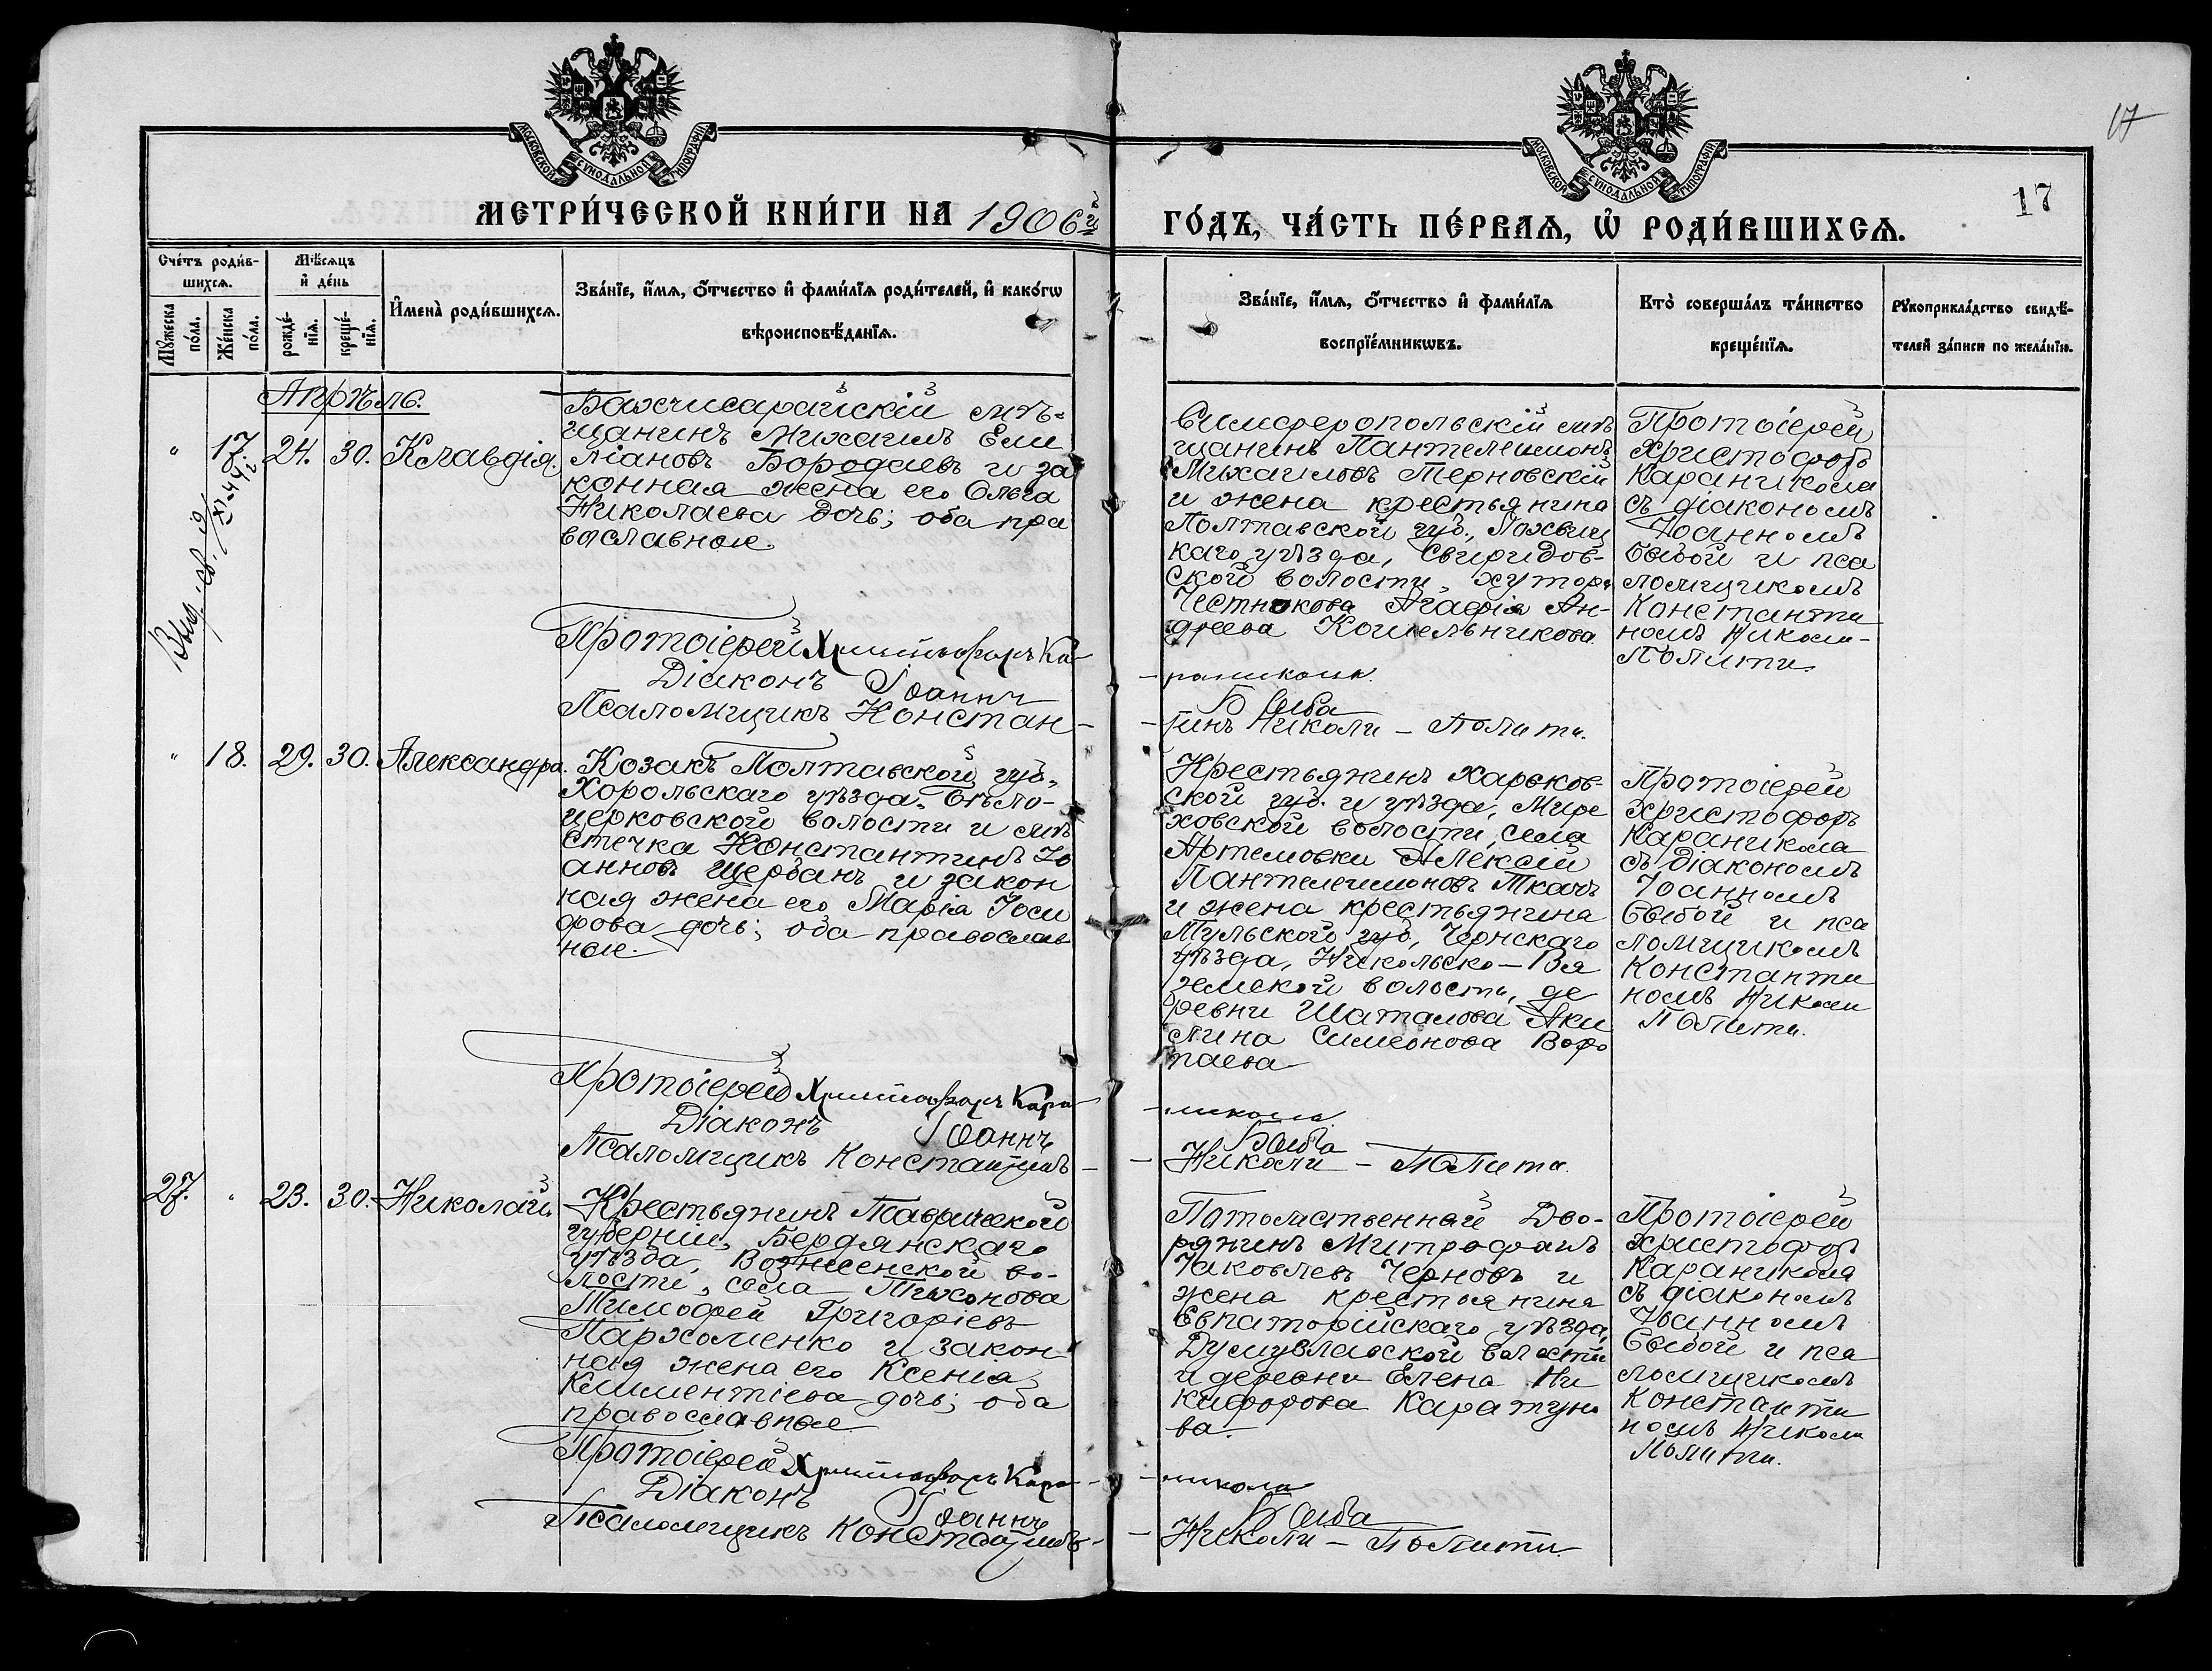 17
17
МОСКОВСКОЙ СѴНОДАЛЬНОЙ ТИПОГРАФІИ
МОСКОВСКОЙ СѴНОДАЛЬНОЙ ТИПОГРАФІИ
МЕТРИ́ЧЕСКОЙ КНИ́ГИ НА 1906й
ГО́ДЪ, ЧА́СТЬ ПЕ́РВАѦ, Ѡ҆ РОДИ́ВШИХСѦ.
Сче́тъ роди́в-
шихсѧ.
Мꙋ́жеска
по́ла.
Же́нска
по́ла.
Мѣ́сѧцъ
и҆ де́нь
рожде́-
нїѧ.
креще́-
нїѧ.
И҆мена̀ роди́вшихсѧ.
Зва́нїе, и҆́мѧ, ѻ҆́тчество и҆ фами́лїѧ роди́телей, и҆ како́гѡ
вѣроисповѣ́данїѧ.
Зва́нїе, и҆́мѧ, ѻ҆́тчество и҆ фами́лїѧ
воспрїе́мникѡвъ.
Кто̀ соверша́лъ та́инство
креще́нїѧ.
Рꙋкоприкла́дство свидѣ́-
телей за́писи по жела́нїю.
Апрѣль.
" 17. 24. 30. Клавдія.
Бахчисарайскій мѣ-
щанинъ Михаилъ Еми
ліановъ Бородаевъ и за
конная жена его Ольга
Николаева дочь; оба пра
вославные.
Симферопольскій мѣ
щанинъ Пантелеимонъ
Михаиловъ Терновскій
и жена крестьянина
Полтавской губ., Лохвиц
каго уѣзда, Свиридов-
ской волости, хутора
Честнокова Агафія Ан-
дреева Кошельникова
Протоіерей
Христофоръ
Караникола
съ діакономъ
Іоанномъ
Быбой и пса
ломщикомъ
Константи
номъ Николи-
Полити.
Протоіерей Христофоръ Ка-
-раникола.
Діаконъ Іоаннъ
Быба
Псаломщикъ Констан-
-тинъ Николи - Полити.
" 18. 29. 30. Александра.
Козакъ Полтавской губ.,
Хорольскаго уѣзда, Бѣло-
церковской волости и мѣ
стечка Константинъ Іо
анновъ Щербань и закон
ная жена его Марія Іоси
фова дочь; оба православ
ные.
Крестьянинъ Харьков-
ской губ. и уѣзда, Мире
ховской волости, села
Артемовки Алексій
Пантелеимоновъ Ткачъ
и жена крестьянина
Тульской губ., Чернскаго
уѣзда, Никольско-Вя
земской волости, де
ревни Шаталова Аки
лина Симеонова Воро
паева
Протоіерей
Христофоръ
Караникола
съ діакономъ
Іоанномъ
Быбой и пса
ломщикомъ
Константи
номъ Николи
Полити.
Протоіерей Христофоръ Кара-
-никола.
Діаконъ Іоаннъ
Быба
Псаломщикъ Константинъ-
-Николи - Полити.
27. " 23. 30. Николай.
Крестьянинъ Таврической
губерніи, Бердянскаго
уѣзда, Вознесенской во-
лости, села Тихонова
Тимофей Григоріевъ
Пархоменко и закон
ная жена его Ксенія
Климентіева дочь; оба
православные.
Потомственный Дво-
рянинъ Митрофанъ
Іаковлевъ Черновъ и
жена крестьянина
Евпаторійскаго уѣзда,
Дунувлавской волости
и деревни Елена Ни
кифорова Каратуно
ва
Протоіерей
Христофоръ
Караникола
съ діакономъ
Іоанномъ
Быбой и пса
ломщикомъ
Константи
номъ Николи
Полити.
Протоіерей Христофоръ Кара-
-никола
Діаконъ Іоаннъ
Быба
Псаломщикъ Константинъ-
-Николи - Полити.